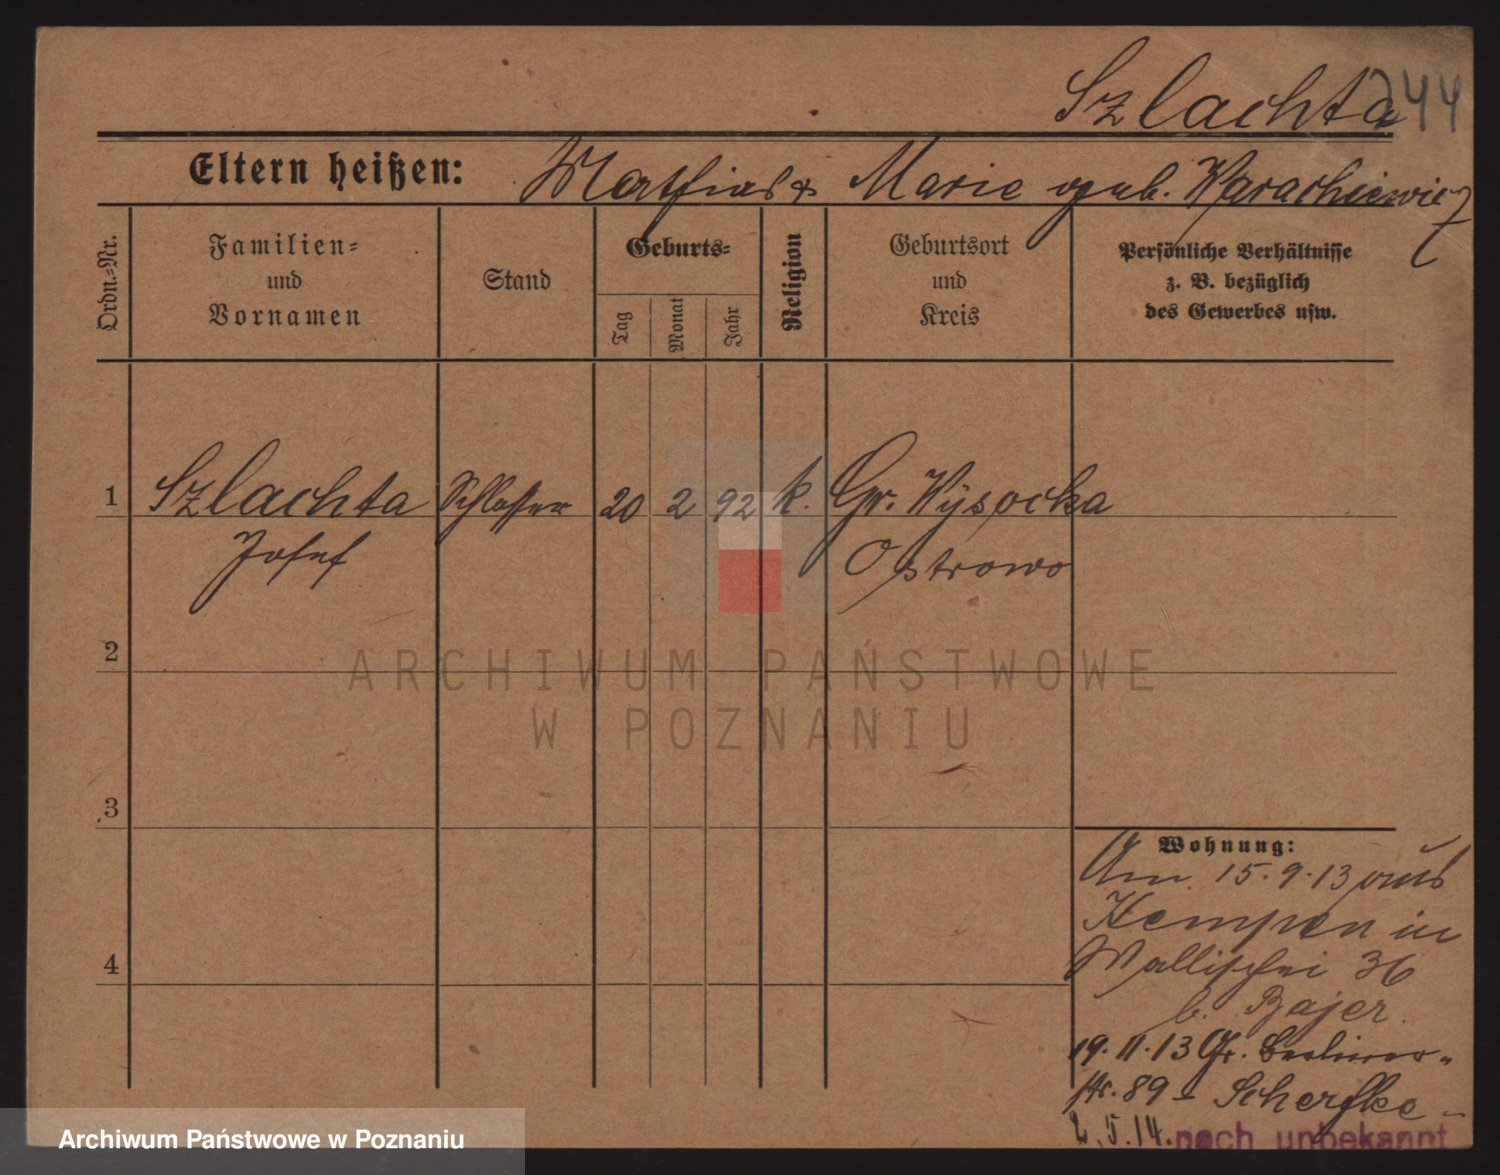 Szlachta 744
Eltern heißen: Mathias & Marie geb. Marachiewicz
Ordn.=Nr.
Familien=
und
Vornamen
Stand
Geburts=
Tag
Monat
Jahr
Religion
Geburtsort
und
Kreis
Persönliche Verhältnisse
z. B. bezüglich
des Gewerbes usw.
1 Szlachta Schlosser 20 2 92 k. Gr. Wysocka
Josef Ostrowo
2
3
4
Wohnung:
Am 15.9.13 aus
Kempen in
Wallischei 36
b. Bajer.
19.11.13 Gr. Berliner-
str. 89 - Scherfke -
2.5.14. nach unbekannt
ARCHIWUM PAŃSTWOWE
W POZNANIU
Archiwum Państwowe w Poznaniu